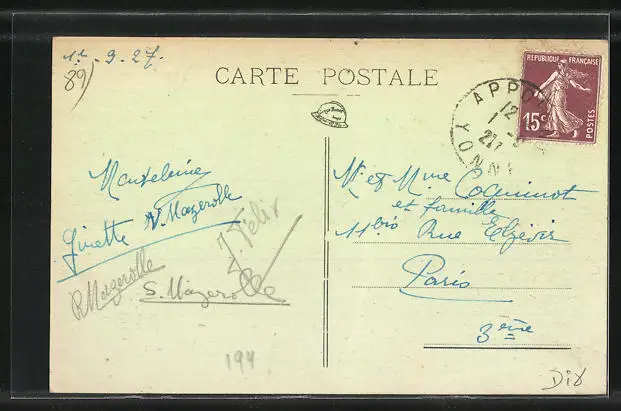 1er 9. 27.
89)
CARTE POSTALE
REPUBLIQUE FRANÇAISE
15c
POSTES
APPOI
12
1 -9
27
YONNE
Madeleine
Ginette N. Mazerolle
R Mazerolle
J. Félix
S. Mazerolle
194
Mr et Mme Coquinot
et famille
11bis Rue Elzévir
Paris
3ème
Dix